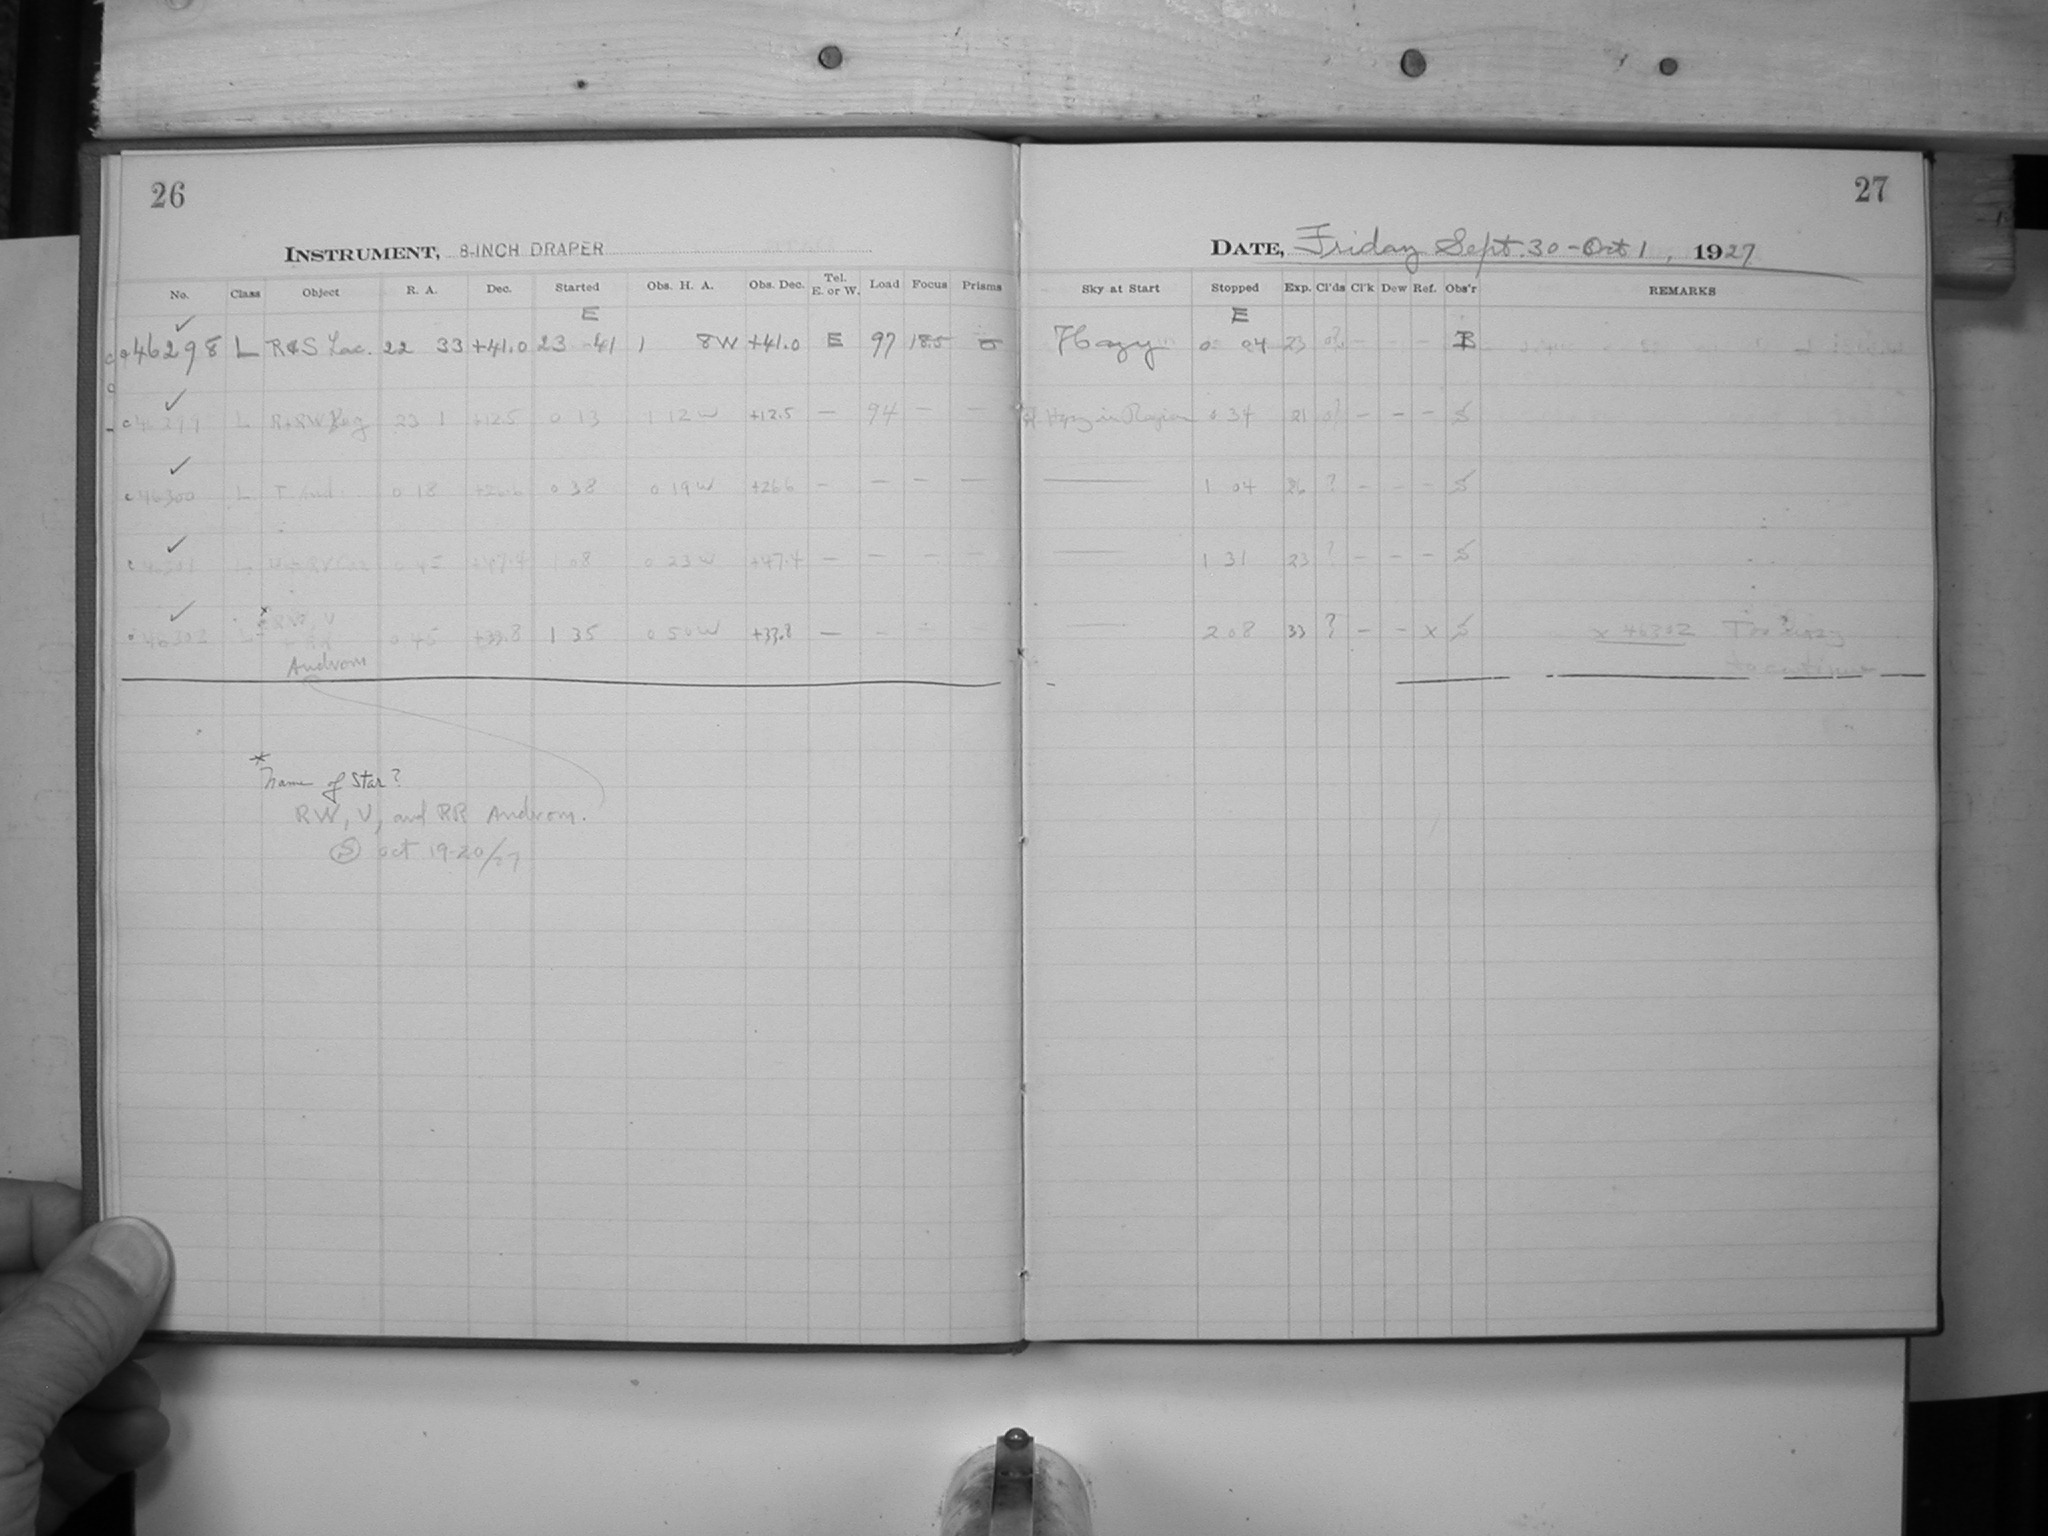 26
27
INSTRUMENT, 8-INCH DRAPER
DATE, Friday Sept. 30 - Oct 1, 1927
No. Class Object R. A. Dec. Started Obs. H. A. Obs. Dec. Tel. E. or W. Load Focus Prisms Sky at Start Stopped Exp. Cl'ds Cl'k Dew Ref. Obs'r REMARKS
E E
✓
46298 L R&S Lac. 22 33 +41.0 23 41 1 8W +41.0 E 97 18.5 Hazy 0 04 23 - - - B
✓
c 46299 L R+RW Peg 23 1 +12.5 0 13 1 12 W +12.5 — 94 — — Hazy in Region 0 34 21 - - - S
✓
c 46300 L T And. 0 18 +26.6 0 38 0 19 W +26.6 — — — — — 1 04 26 ? - - - S
✓
c 46301 L 0 45 +47.4 1 08 0 23 W +47.4 — — — — — 1 31 23 ? - - - S
✓
46302 L * RW, V
+ RR 0 45 +33.8 1 35 0 50 W +33.8 — — — — 2 08 33 ? - - x S x 46302 Too hazy
Androm to continue
*
Name of Star?
RW, V, and RR Androm.
S Oct 19-20/27